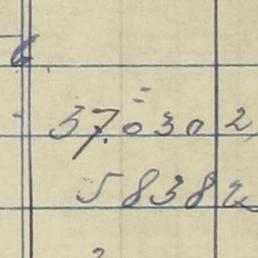 6
37.030 2
5838 2